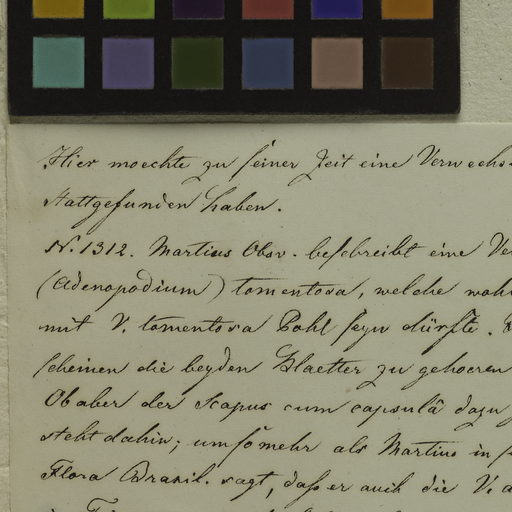 Hier moechte zu seiner Zeit eine Verwechs
stattgefunden haben.
N. 1312. Martius Obsv. beschreibt eine Ve
(Adenopodium) tomentosa, welche wohl
mit V. tomentosa Pohl seyn dürfte.
scheinen die beyden Blaetter zu gehoeren
Ob aber der Scapus cum capsulâ dazu
steht dahin; umsomehr als Martius in
Flora Brasil. sagt, dass er auch die V.